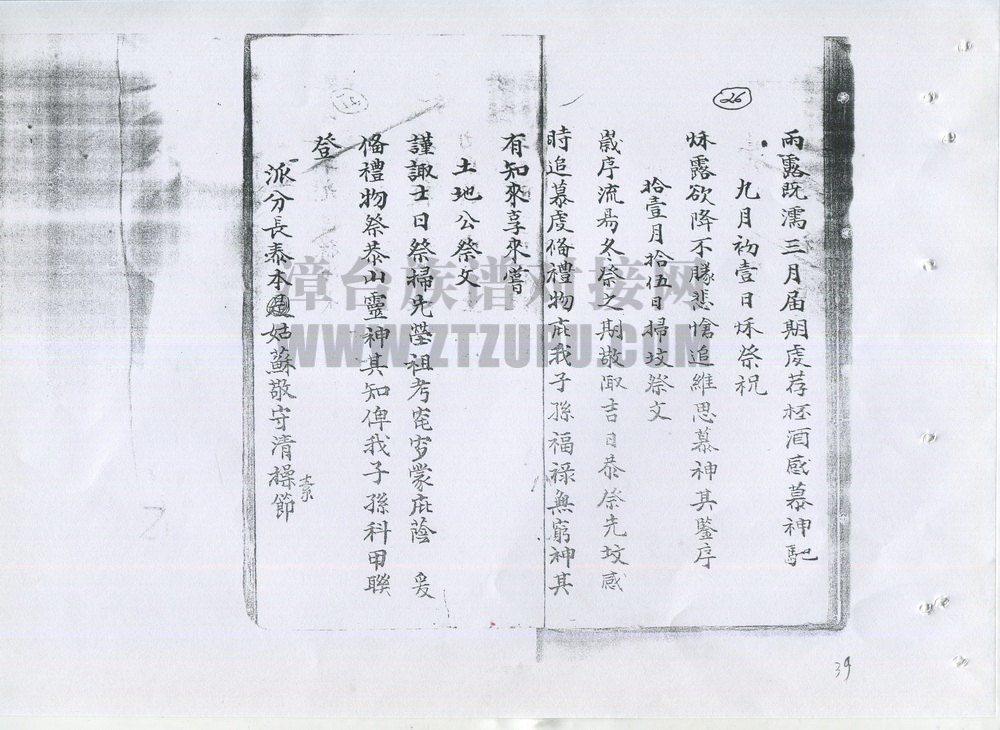 26
雨露既濡三月屆期虔荐桮酒感慕神馳
九月初壹日秌祭祝
秌露欲降不勝悲愴追維思慕神其鑒序
拾壹月拾伍日掃坟祭文
歲序流易冬祭之期敬陬吉日恭祭先坟感
時追慕虔俻禮物庇我子孫福祿無窮神其
有知來享來嘗
土地公祭文
謹諏士日祭掃先塋祖考窀穸蒙庇蔭 爰
俻禮物祭泰山靈神其知俾我子孫科甲聯
登
派分長泰本姑蘇敬守清操節
素
漳台族谱对接网
WWW.ZTZUPU.COM
39